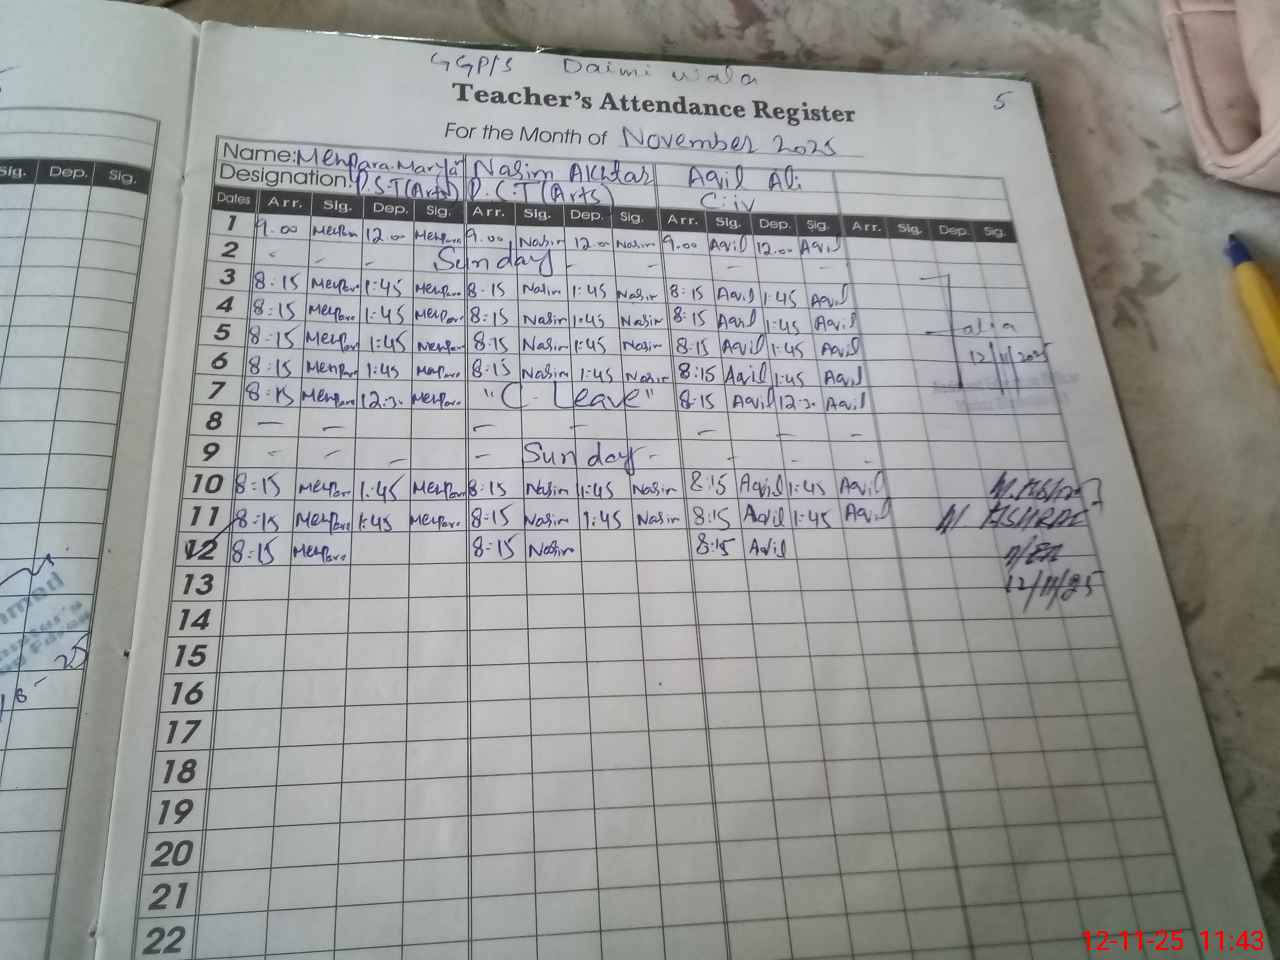 GGP/S Daimi Wala
Teacher's Attendance Register
5
For the Month of November 2025
Name: Mehpara Maryam Nasim Akhtar Aqil Ali
Designation: P.S.T (Arts) P.S.T (Arts) C.iv
Sig. Dep. Sig.
Dates Arr. Sig. Dep. Sig. Arr. Sig. Dep. Sig. Arr. Sig. Dep. Sig. Arr. Sig. Dep. Sig.
1 9.00 Mehpara 12.00 Mehpara 9.00 Nasim 12.00 Nasim 9.00 Aqil 12.00 Aqil
2 - - - Sunday - - - -
3 8:15 Mehpara 1:45 Mehpara 8:15 Nasim 1:45 Nasim 8:15 Aqil 1:45 Aqil
4 8:15 Mehpara 1:45 Mehpara 8:15 Nasim 1:45 Nasim 8:15 Aqil 1:45 Aqil
5 8:15 Mehpara 1:45 Mehpara 8:15 Nasim 1:45 Nasim 8:15 Aqil 1:45 Aqil
6 8:15 Mehpara 1:45 Mehpara 8:15 Nasim 1:45 Nasim 8:15 Aqil 1:45 Aqil
12/11/2025
7 8:15 Mehpara 12:30 Mehpara "C. Leave" 8:15 Aqil 12:30 Aqil
8 - - - - - - -
9 - - - - Sunday - - - -
10 8:15 Mehpara 1:45 Mehpara 8:15 Nasim 1:45 Nasim 8:15 Aqil 1:45 Aqil
11 8:15 Mehpara 1:45 Mehpara 8:15 Nasim 1:45 Nasim 8:15 Aqil 1:45 Aqil
12 8:15 Mehpara 8:15 Nasim 8:15 Aqil
13
12/11/25
14
15
16
17
18
19
20
21
22
12-11-25 11:43